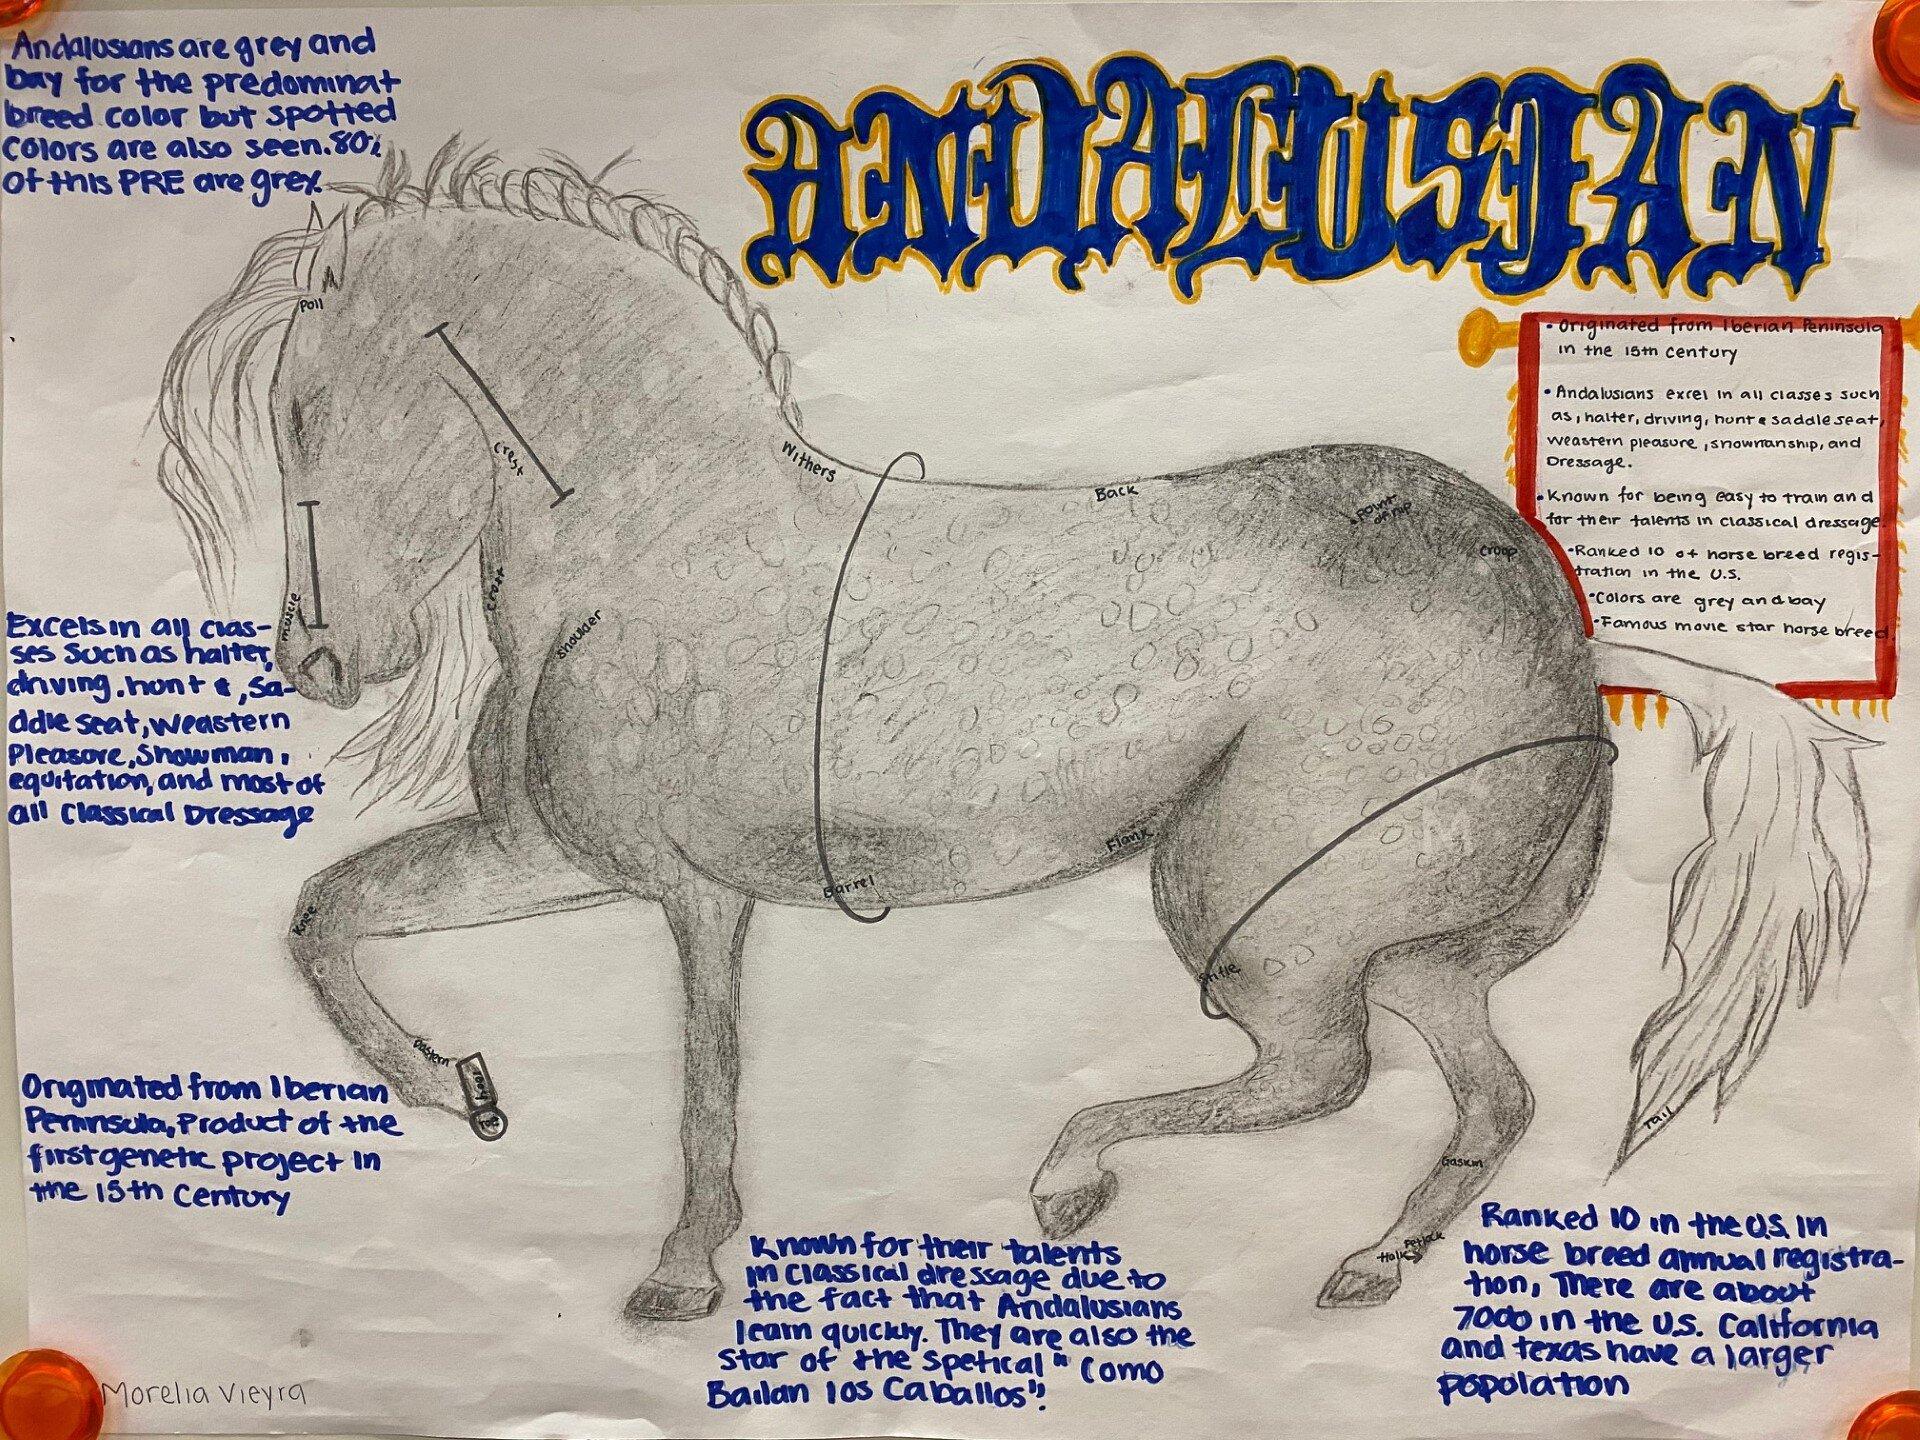 Andalusians are grey and
bay for the predominat
breed color but spotted
colors are also seen. 80%
of this PRE are grey.
ANDALUSIAN
• Originated from Iberian Peninsula
in the 15th century
• Andalusians excel in all classes such
as, halter, driving, hunt & saddle seat,
weastern pleasure, showmanship, and
Dressage.
• Known for being easy to train and
for their talents in classical dressage.
• Ranked 10 of horse breed regis-
tration in the U.S.
• Colors are grey and bay
• Famous movie star horse breed.
Poll
crest
Withers
Back
point
of hip
croop
muscle
shoulder
Barrel
Flank
Stifle
M
Knee
pastern
Tail
Gaskin
Fetlock
Excels in all clas-
ses such as halter,
driving, hunt &, sa-
ddle seat, weastern
Pleasure, Showman,
equitation, and most of
all Classical Dressage
Originated from Iberian
Peninsula, Product of the
first genetic project in
the 15th Century
Known for their talents
in classical dressage due to
the fact that Andalusians
learn quickly. They are also the
star of the spetical "Como
Bailan los Caballos".
Ranked 10 in the U.S. in
horse breed annual registra-
tion, There are about
7000 in the U.S. California
and texas have a larger
population
Morelia Vieyra